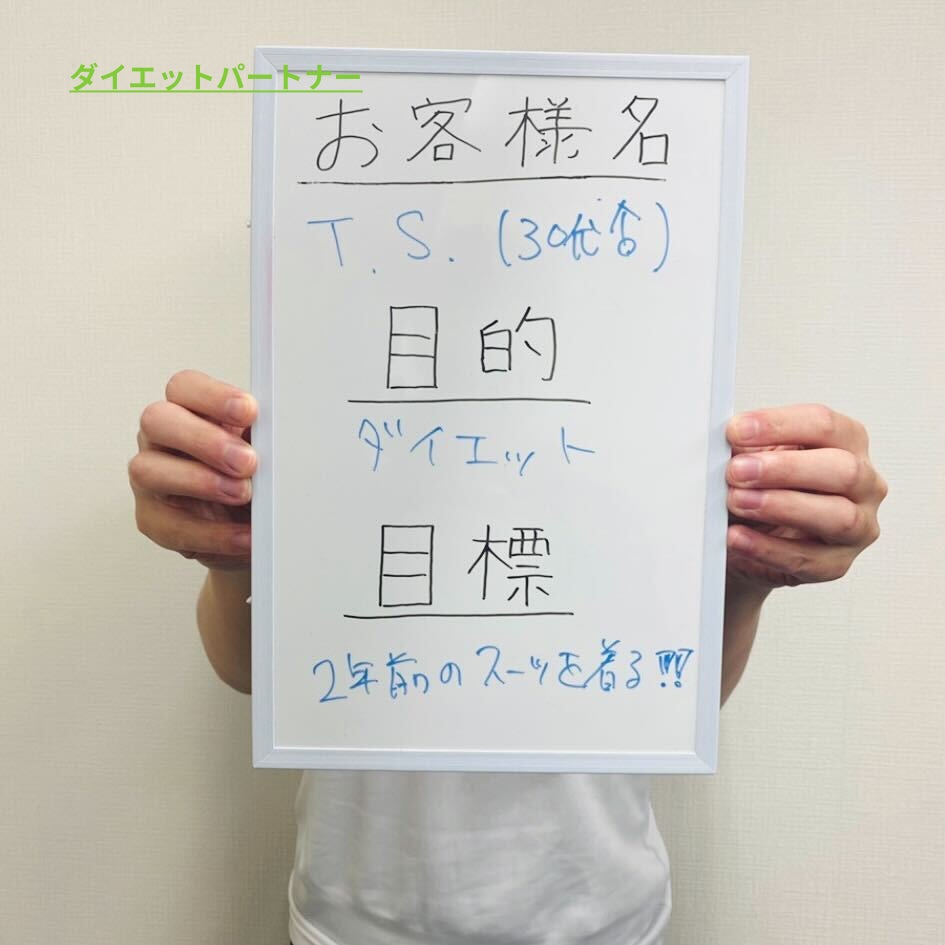 ダイエットパートナー
お客様名
T.S. (30代
目的
ダイエット
目標
2年前のスーツを着る!!